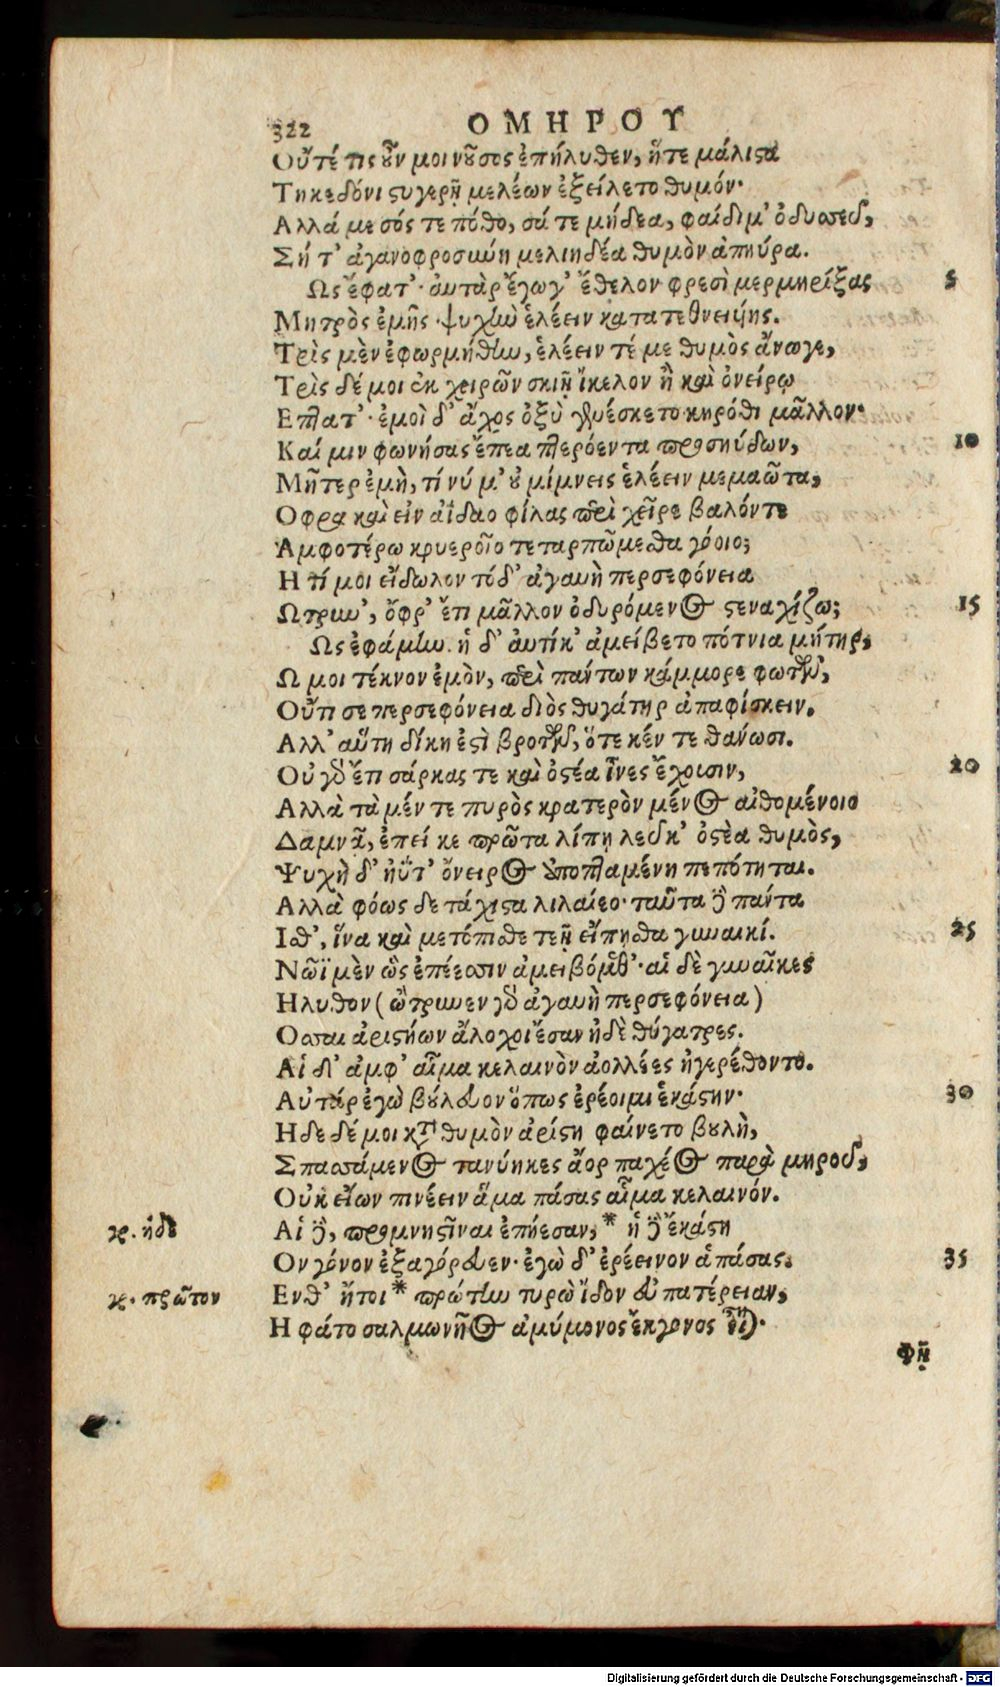 322 ΟΜΗΡΟΥ
Οὔτέ τις οὖν μοι νοῦσος ἐπήλυθεν, ἥτε μάλιςα
Τηκεδόνι ςυγερῇ μελέων ἐξείλετο θυμόν·
Αλλά με σός τε πόθος, σά τε μήδεα, φαίδιμ' ὀδυσσεῦ,
Σή τ' ἀγανοφροσύνη μελιηδέα θυμὸν ἀπηύρα.
Ως ἔφατ'· αὐτὰρ ἔγωγ' ἔθελον φρεσὶ μερμηρίξας 5
Μητρὸς ἐμῆς ψυχὴν ἑλέειν κατατεθνειήης.
Τρὶς μὲν ἐφωρμήθην, ἑλέειν τέ με θυμὸς ἄνωγε,
Τρὶς δέ μοι ἐκ χειρῶν σκιῇ ἴκελον ἢ καὶ ὀνείρῳ
Επτατ'· ἐμοὶ δ' ἄχος ὀξὺ γενέσκετο κηρόθι μᾶλλον·
Καί μιν φωνήσας ἔπεα πτερόεντα προσηύδων, 10
Μῆτερ ἐμὴ, τί νύ μ' οὐ μίμνεις ἑλέειν μεμαῶτα,
Οφρα καὶ εἰν ἀΐδαο φίλας περὶ χεῖρε βαλόντε
Αμφοτέρω κρυεροῖο τεταρπώμεσθα γόοιο;
Η τί μοι εἴδωλον τόδ' ἀγαυὴ περσεφόνεια
Ωτρυν', ὄφρ' ἔτι μᾶλλον ὀδυρόμενος ςεναχίζω; 15
Ως ἐφάμην. ἡ δ' αὐτίκ' ἀμείβετο πότνια μήτηρ,
Ω μοι τέκνον ἐμὸν, περὶ πάντων κάμμορε φωτῶν,
Οὔτι σε περσεφόνεια διὸς θυγάτηρ ἀπαφίσκειν.
Αλλ' αὕτη δίκη ἐςὶ βροτῶν, ὅτε κέν τε θάνωσι.
Οὐ γὰρ ἔτι σάρκας τε καὶ ὀςέα ἶνες ἔχουσιν, 20
Αλλὰ τὰ μέν τε πυρὸς κρατερὸν μένος αἰθομένοιο
Δαμνᾷ, ἐπεί κε πρῶτα λίπῃ λεύκ' ὀςέα θυμὸς,
Ψυχὴ δ' ἠΰτ' ὄνειρος ἀποπταμένη πεπότηται.
Αλλὰ φόως δὲ τάχιςα λιλαίεο· ταῦτα δὲ πάντα
Ισθ', ἵνα καὶ μετόπισθε τεῇ εἴπῃσθα γυναικί. 25
Νῶϊ μὲν ὣς ἐπέεσσιν ἀμειβόμεθ'· αἱ δὲ γυναῖκες
Ηλυθον (ὤτρυνεν γὰρ ἀγαυὴ περσεφόνεια)
Οσσαι ἀριςήων ἄλοχοι ἔσαν ἠδὲ θύγατρες.
Αἱ δ' ἀμφ' αἷμα κελαινὸν ἀολλέες ἠγερέθοντο.
Αὐτὰρ ἐγὼ βούλευον ὅπως ἐρέοιμι ἑκάςην· 30
Ηδε δέ μοι κατὰ θυμὸν ἀρίςη φαίνετο βουλὴ,
Σπασσάμενος τανύηκες ἄορ παχέος παρὰ μηροῦ,
Οὐκ εἴων πινέειν ἅμα πάσας αἷμα κελαινόν.
γρ. ἠδὲ Αἱ δὲ, προμνηςῖναι ἐπήεσαν,* ἡ δὲ ἑκάςη
Ον γόνον ἐξαγόρευεν· ἐγὼ δ' ἐρέεινον ἁπάσας. 35
γρ. πρῶτον Ενθ' ἤτοι* πρώτην τυρὼ ἴδον εὐπατέρειαν,
Η φάτο σαλμωνῆος ἀμύμονος ἔκγονος εἶναι.
φῆ
Digitalisierung gefördert durch die Deutsche Forschungsgemeinschaft - DFG